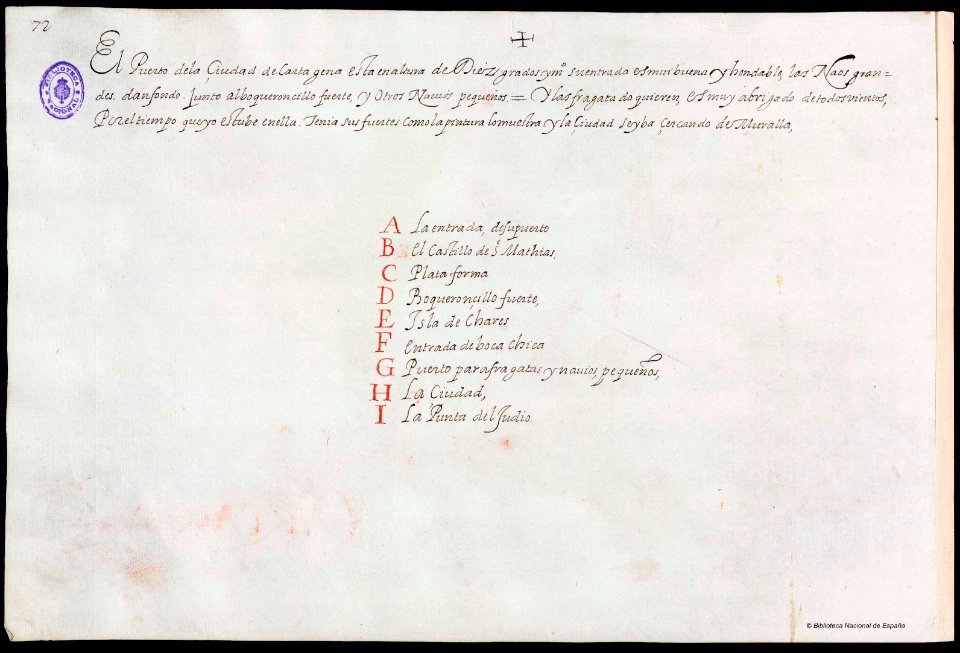 72
El Puerto dela Ciudad de Carta gena esta en altura de Diez, grados, y mº su entrada es mui buena y hondable, las Naos gran=
des. dan fondo Junto al boqueroncillo fuerte, y Otros Nauios pequeños. = Y las fragata do quieren, es muy abrigado de todos vientos,
Por el tiempo que yo estube en ella. Tenia sus fuertes como la pintura lo muestra y la Ciudad se yba Çercando de Muralla,
BIBLIOTECA NACIONAL
A La entrada, de su puerto
B El Castillo de S. Mathias,
C Plata forma
D Boqueronçillo fuerte,
E Isla de Chares
F Entrada de boca Chica
G Puerto para fragatas y nauios, pequeños,
H La Ciudad,
I La Punta del Judio.
© Biblioteca Nacional de España